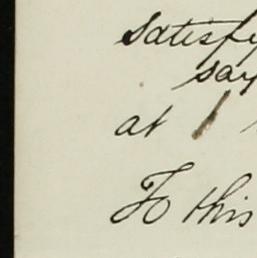 satisfy
say
at
To this